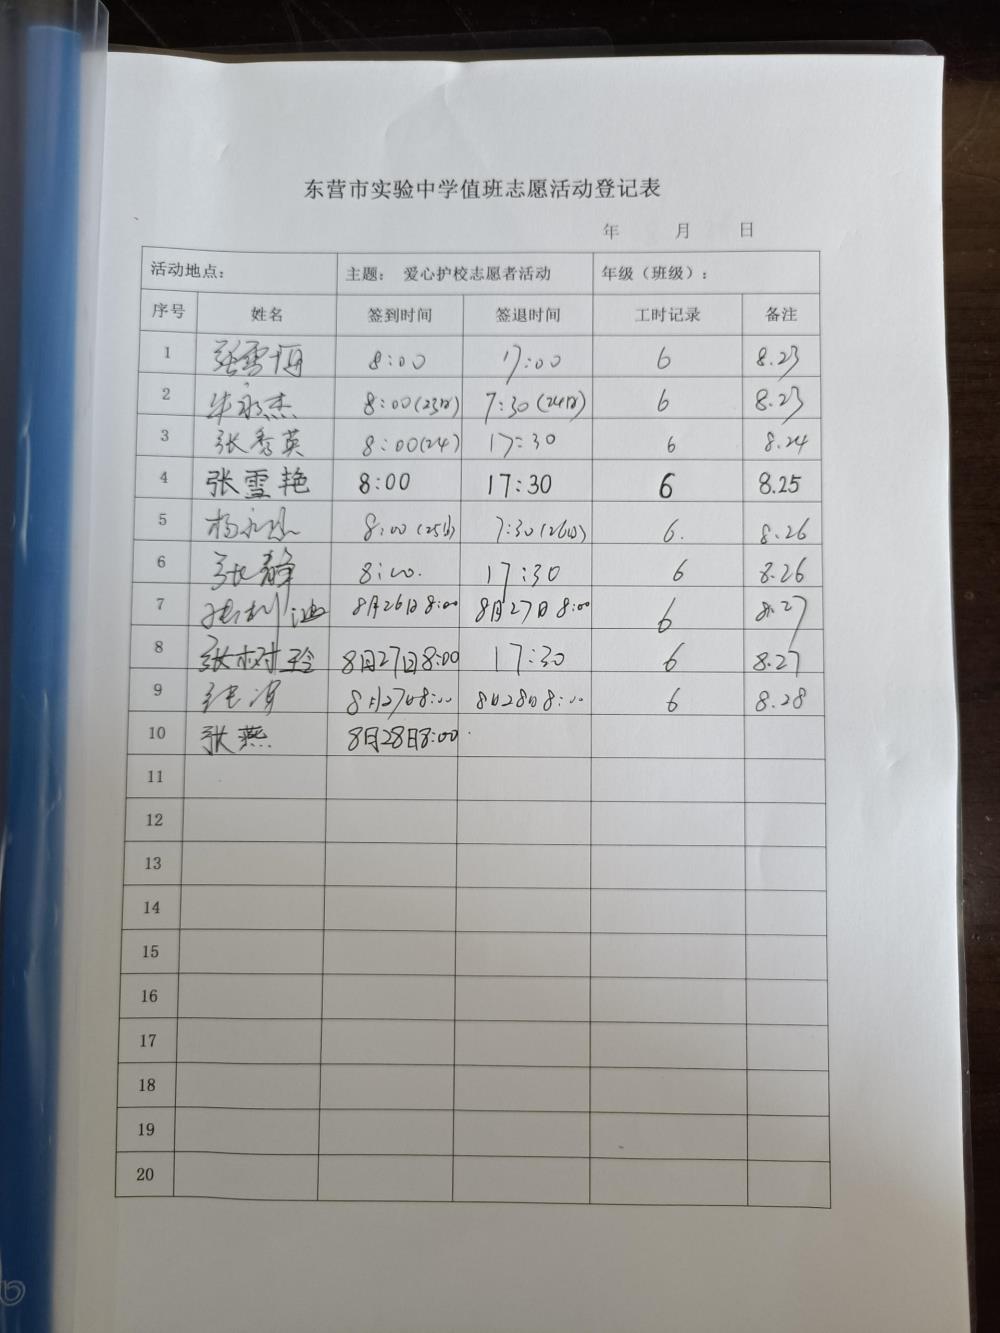 东营市实验中学值班志愿活动登记表
年 月 日
活动地点: 主题: 爱心护校志愿者活动 年级（班级）:
序号 姓名 签到时间 签退时间 工时记录 备注
1 张雪梅 8:00 17:00 6 8.23
2 牛永杰 8:00(23日) 7:30(24日) 6 8.23
3 张秀英 8:00(24) 17:30 6 8.24
4 张雪艳 8:00 17:30 6 8.25
5 杨永 8:00(25日) 7:30(26日) 6. 8.26
6 张静 8:00. 17:30 6 8.26
7 8月26日8:00 8月27日8:00 6 8.27
8 张树玲 8月27日8:00 17:30 6 8.27
9 8月27日8:00 8月28日8:00 6 8.28
10 张燕 8月28日8:00
11
12
13
14
15
16
17
18
19
20